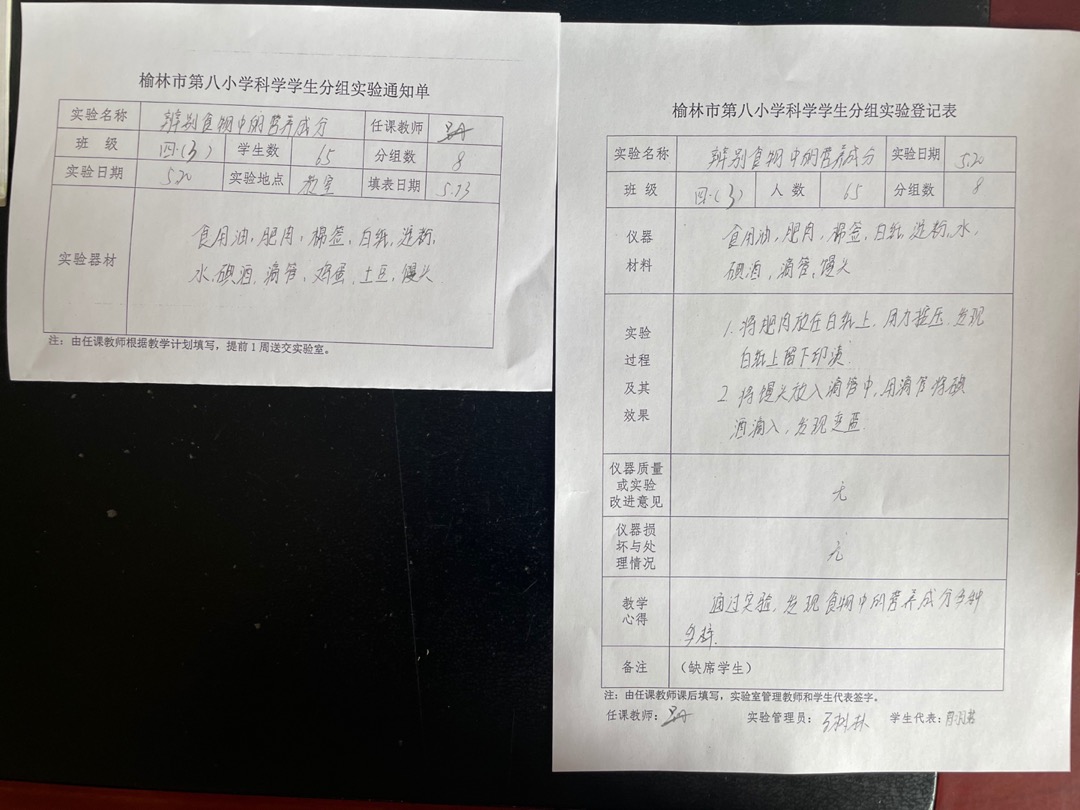 榆林市第八小学科学学生分组实验通知单
实验名称 辨别食物中的营养成分 任课教师
班 级 四.(3) 学生数 65 分组数 8
实验日期 5.20 实验地点 教室 填表日期 5.13
实验器材
食用油,肥肉,棉签,白纸,淀粉,
水,碘酒,滴管,鸡蛋,土豆,馒头
注:由任课教师根据教学计划填写,提前1周送交实验室。
榆林市第八小学科学学生分组实验登记表
实验名称 辨别食物中的营养成分 实验日期 5.20
班 级 四.(3) 人 数 65 分组数 8
仪器
材料
食用油,肥肉,棉签,白纸,淀粉,水,
碘酒,滴管,馒头
实验
过程
及其
效果
1.将肥肉放在白纸上,用力挤压.发现
白纸上留下印渍.
2.将馒头放入滴管中,用滴管将碘
酒滴入,发现变蓝.
仪器质量
或实验
改进意见
无
仪器损
坏与处
理情况
无
教学
心得
通过实验,发现食物中的营养成分多种
多样.
备注 (缺席学生)
注:由任课教师课后填写,实验室管理教师和学生代表签字。
任课教师: 实验管理员: 学生代表: